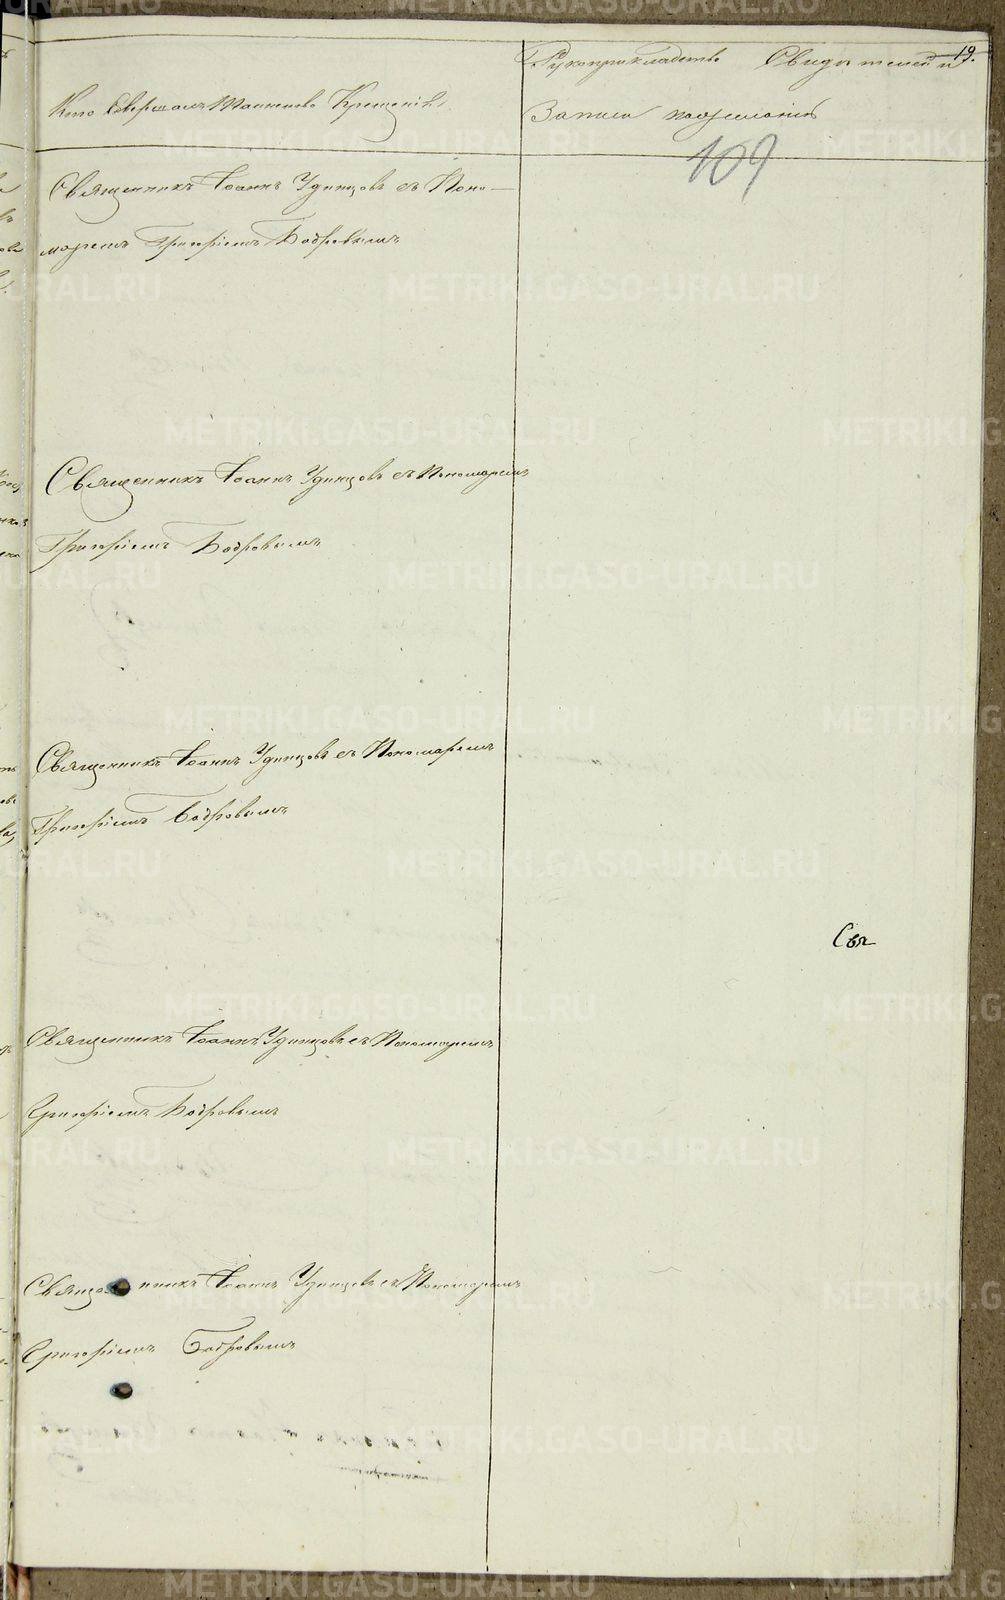 19.
Кто Совершалъ Таинство Крещенія
Рукоприкладство Свидѣтелей
Записи по желанію
109
Священникъ Іоаннъ Удинцовъ съ Поно-
маремъ Григоріемъ Бобровымъ
Священникъ Іоаннъ Удинцовъ съ Пономаремъ
Григоріемъ Бобровымъ
Священникъ Іоаннъ Удинцовъ съ Пономаремъ
Григоріемъ Бобровымъ
Свя
Священникъ Іоаннъ Удинцовъ съ Пономаремъ
Григоріемъ Бобровымъ
Священникъ Іоаннъ Удинцовъ съ Пономаремъ
Григоріемъ Бобровымъ
METRIKI.GASO-URAL.RU